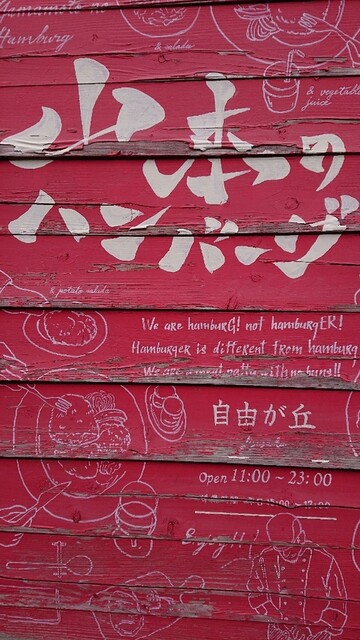 Yamamoto no
Hamburg
& salada
& vegetable
juice
山本の
ハンバーグ
& potato salada
We are hamburG! not hamburgER!
Hamburger is different from hamburg
We are a meat patty with no buns!!
自由が丘
Open 11:00 ~ 23:00
Enjoy!!